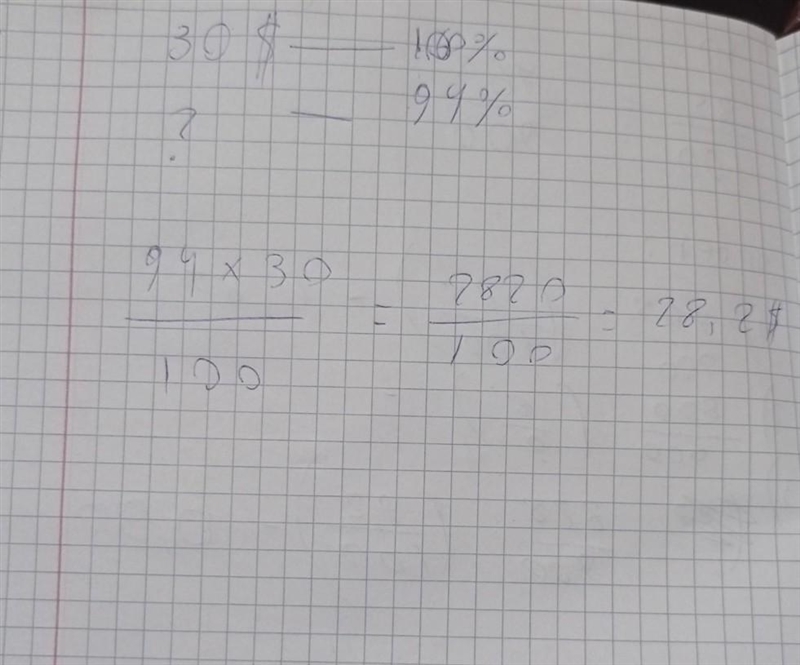 30 $ — 100%
? — 94%
94 x 30 / 100 = 2820 / 100 = 28,2$